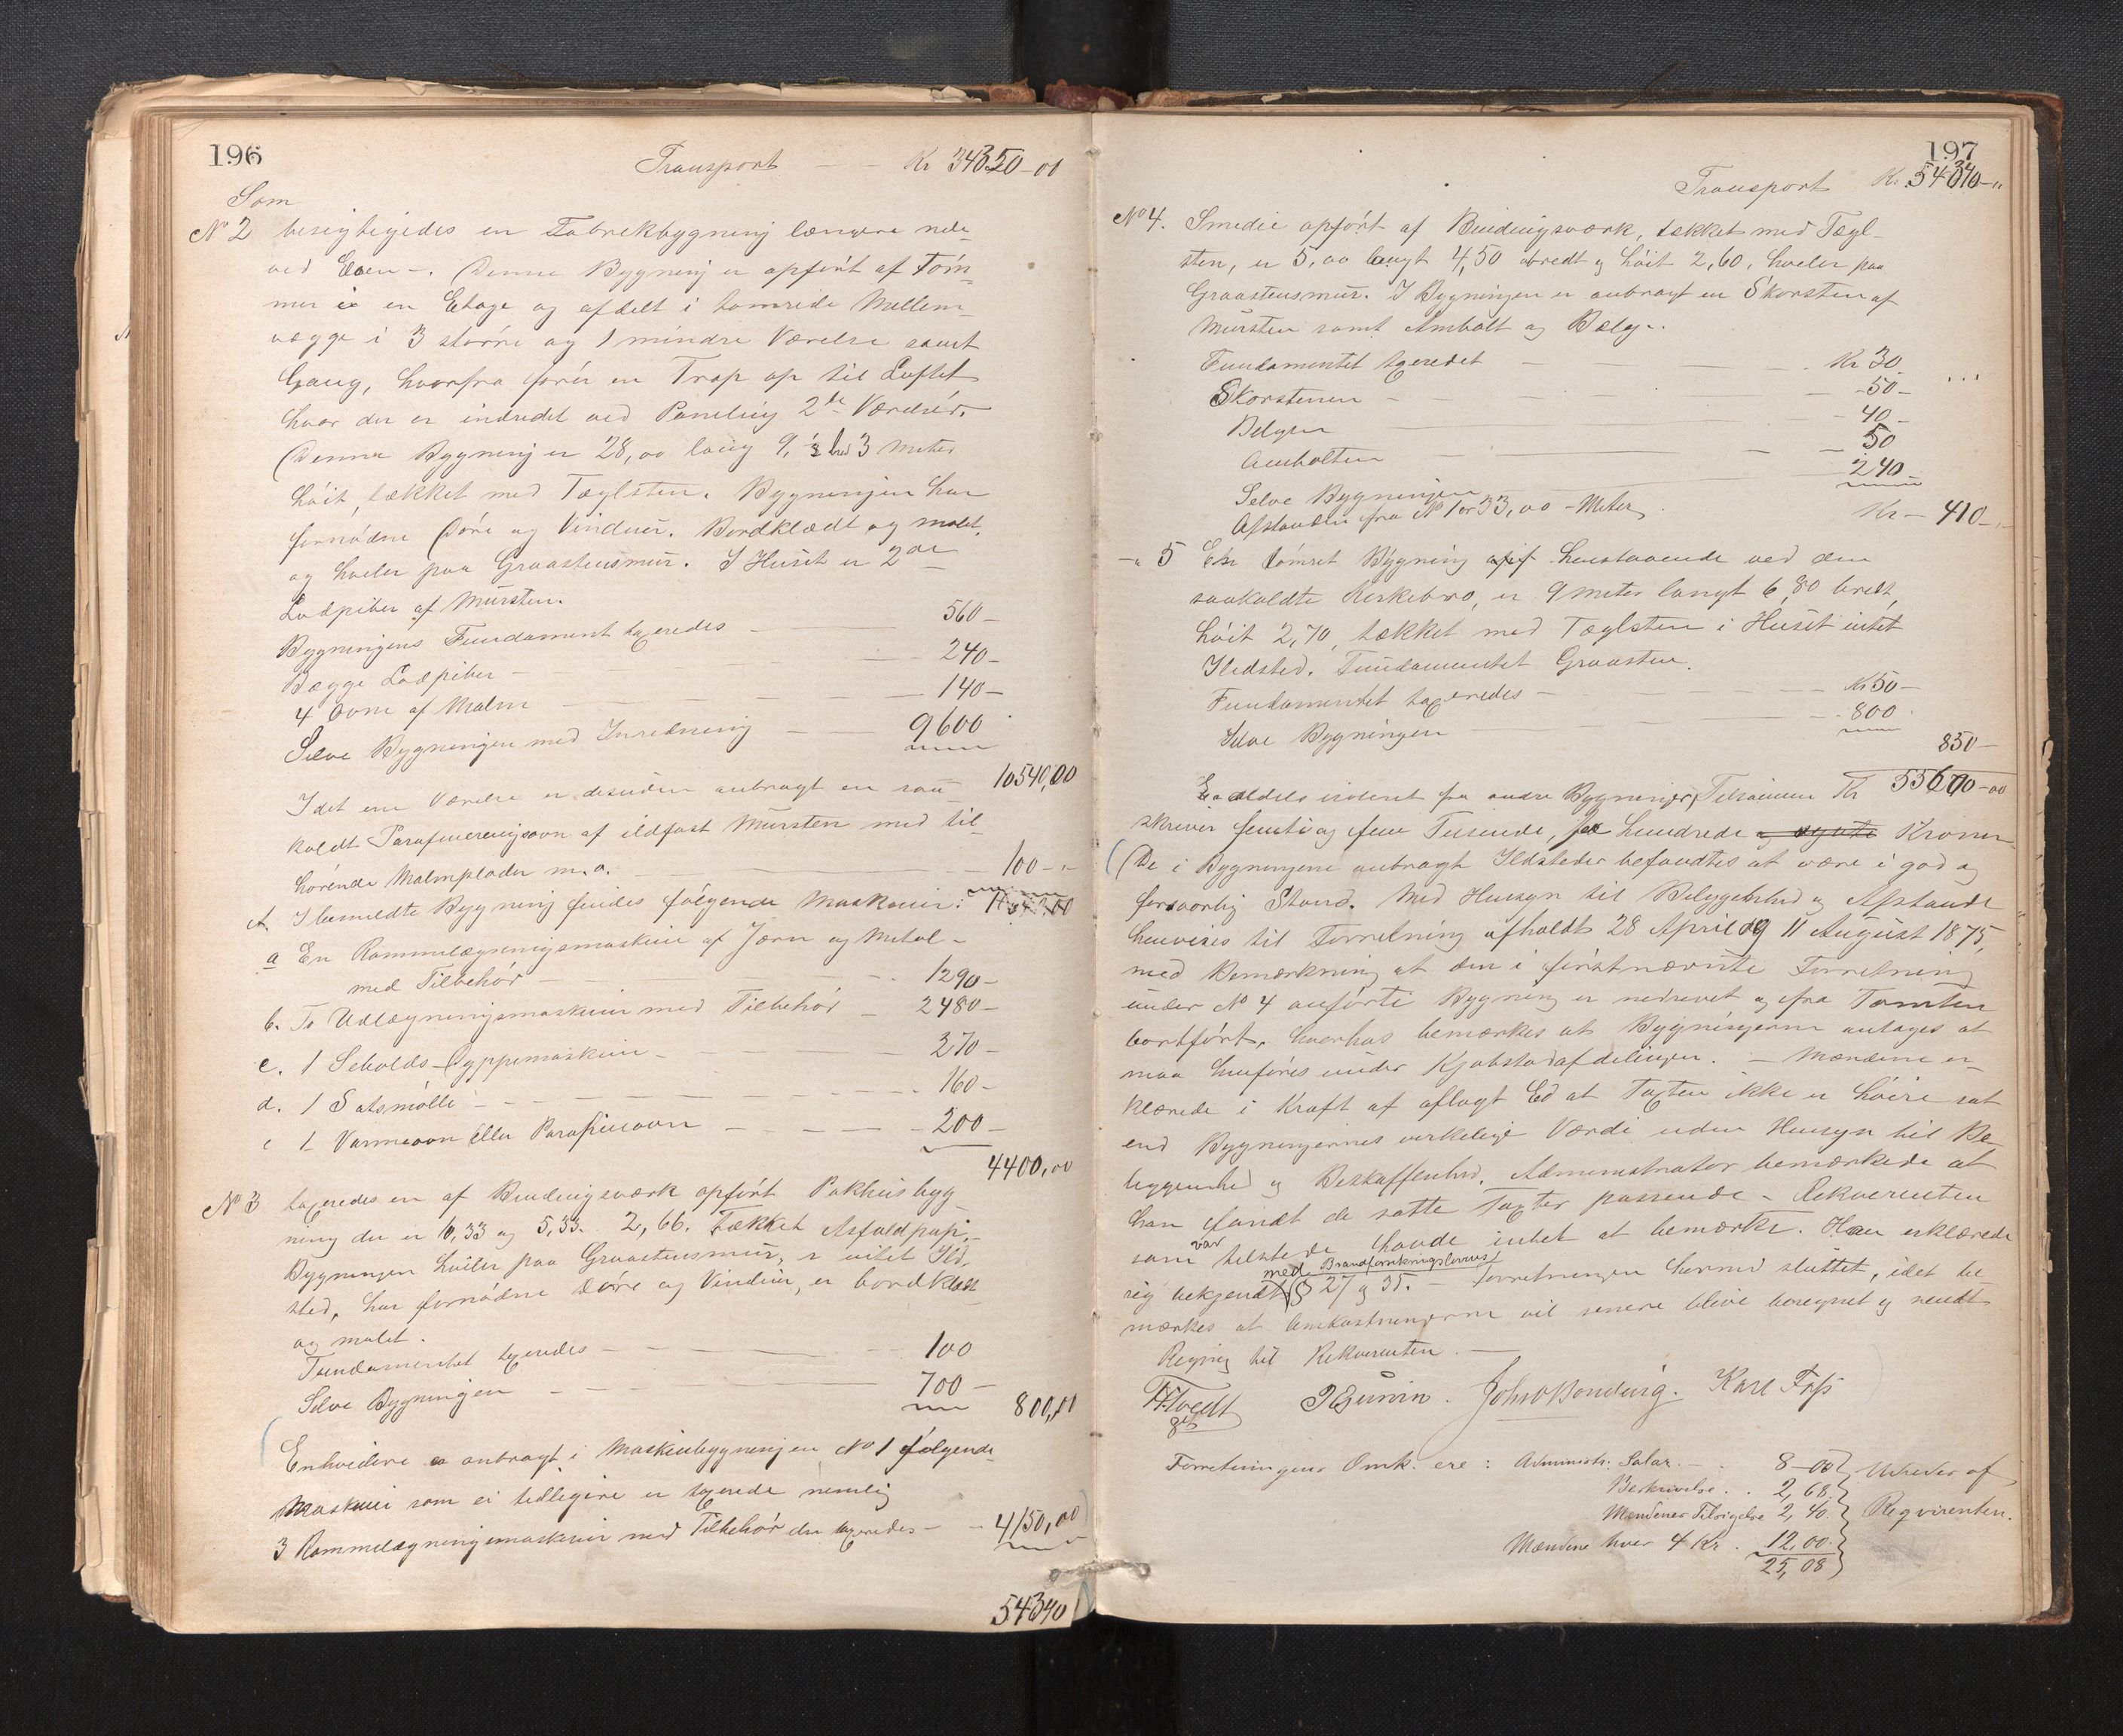 196
Transport — Kr 34350-00
Som
No 2 besigtigedes en Fabrekbygning længere nede
ved Elven -. Denne Bygning er opført af Tøm-
mer i en Etage og afdelt i tømrede Mellem-
vægge i 3 større og 1 mindre Værelse samt
Gang, hvorfra fører en Trap op til Loftet
hvor der er indredet ved Paneling 2de Værelser.
Denne Bygning er 28,00 lang 9, bred 3 Meter
høit, tækket med Tæglsten. Bygningen har
fornødne Døre og Vinduer. Bordklædt og malet.
og hviler paa Graastensmur. I Huset er 2de
Lodpiber af Mursten.
Bygningens Fundament taxeredes — 560-
Begge Lodpiber — 240-
4 Ovne af Malm — 140-
Selve Bygningen med Inredning — 9600
10540,00
I det ene Værelse er desuden anbragt en saa
kaldt Parafineringsovn af ildfast Mursten med til-
hørende Malmplader m.a. — 100-"
A. I bemeldte Bygning findes følgende Maskiner:
a En Rammelægningsmaskine af Jern og Metal-
med Tilbehør — 1290-
b. To Udlægningsmaskiner med Tilbehør — 2480-
c. 1 Seholds Dyppemaskine — 270-
d. 1 Satsmølle — 160-
e 1 Varmeovn eller Parafinovn — 200-
4400,00
No 3 taxeredes en af Bindingsværk opført Pakhusbyg-
ning der er 6,33 og 5,33. 2,66. Tækket Asfaldpap,-
Bygningen hviler paa Graastensmur, intet Ild-
sted, har fornødne Døre og Vinduer, er bordklædt
og malet.
Fundamentet taxeredes — 100
Selve Bygningen — 700-
800,00
Endvidere er anbragt i Maskinbygningen No 1 følgende
Maskiner som ei tidligere er taxerede nemlig
3 Rammelægningsmaskiner med Tilbehør der taxeredes — 4150,00
54340
197
Transport Kr. 54340-"
No 4. Smedie opført af Bindingsværk, tækket med Tægl-
sten, er 5,00 langt 4,50 bredt og høit 2,60, hviler paa
Graastensmur. I Bygningen er anbragt en Skorsten af
Mursten samt Ambolt og Bælg.
Fundamentet taxeredet — Kr 30
Skorstenen — 50-
Belgen — 40-
Ambolten — 50
Selve Bygningen — 240-
Afstanden fra No 1 er 33,00 -Meter. Kr- 410-
-" 5 En tømret Bygning henstaaende ved den
saakaldte Kirkebro, er 9 meter langt 6,80 bredt,
høit 2,70, tækket med Tæglsten i Huset intet
Ildsted. Fundamentet Graasten.
Fundamentet taxeredes — Kr 50-
Selve Bygningen — 800
850-
aldeles isoleret fra andre Bygninger, Tilsammen Kr 55600-00
skriver femti og fem Tusende, sex hundrede Kroner
De i Bygningene anbragt Ildsteder befandtes at være i god og
forsvarlig Stand. Med Hensyn til Belyggenhed og Afstande
henvises til Forretning afholdt 28 April og 11 August 1875,
med Bemærkning at den i førstnævnte Forretning
under No 4 anførte Bygning er nedrevet og fra Tomten
bortført, hvorhos bemærkes at Bygningerne antages at
maa henføres under Kjøbstadafdelingen. - Mændene er-
klærede i Kraft af aflagt Ed at Taxten ikke er høiere sat
end Bygningernes virkelige Værdi uden Hensyn til Be-
leggenhed og Beskaffenhed. Administrator bemærkede at
han fandt de satte Taxter passende - Rekvirenten
som var tilstede havde intet at bemærke. Han erklærede
sig bekjendt med Brandforsikringslovens § 27 og 35. - Forretningen hermed sluttet, idet be-
mærkes at Omkostningerne vil senere blive beregnet og sendt
Regning til Rekvirenten. —
Forretningens Omk. ere: Administr. Salar. 8-00
Beskrivelse . . 2,68.
Mændenes Tilsigelse 2,40.
Mændene hver 4 Kr. 12,00.
25,08
Udredes af
Reqvirenten.